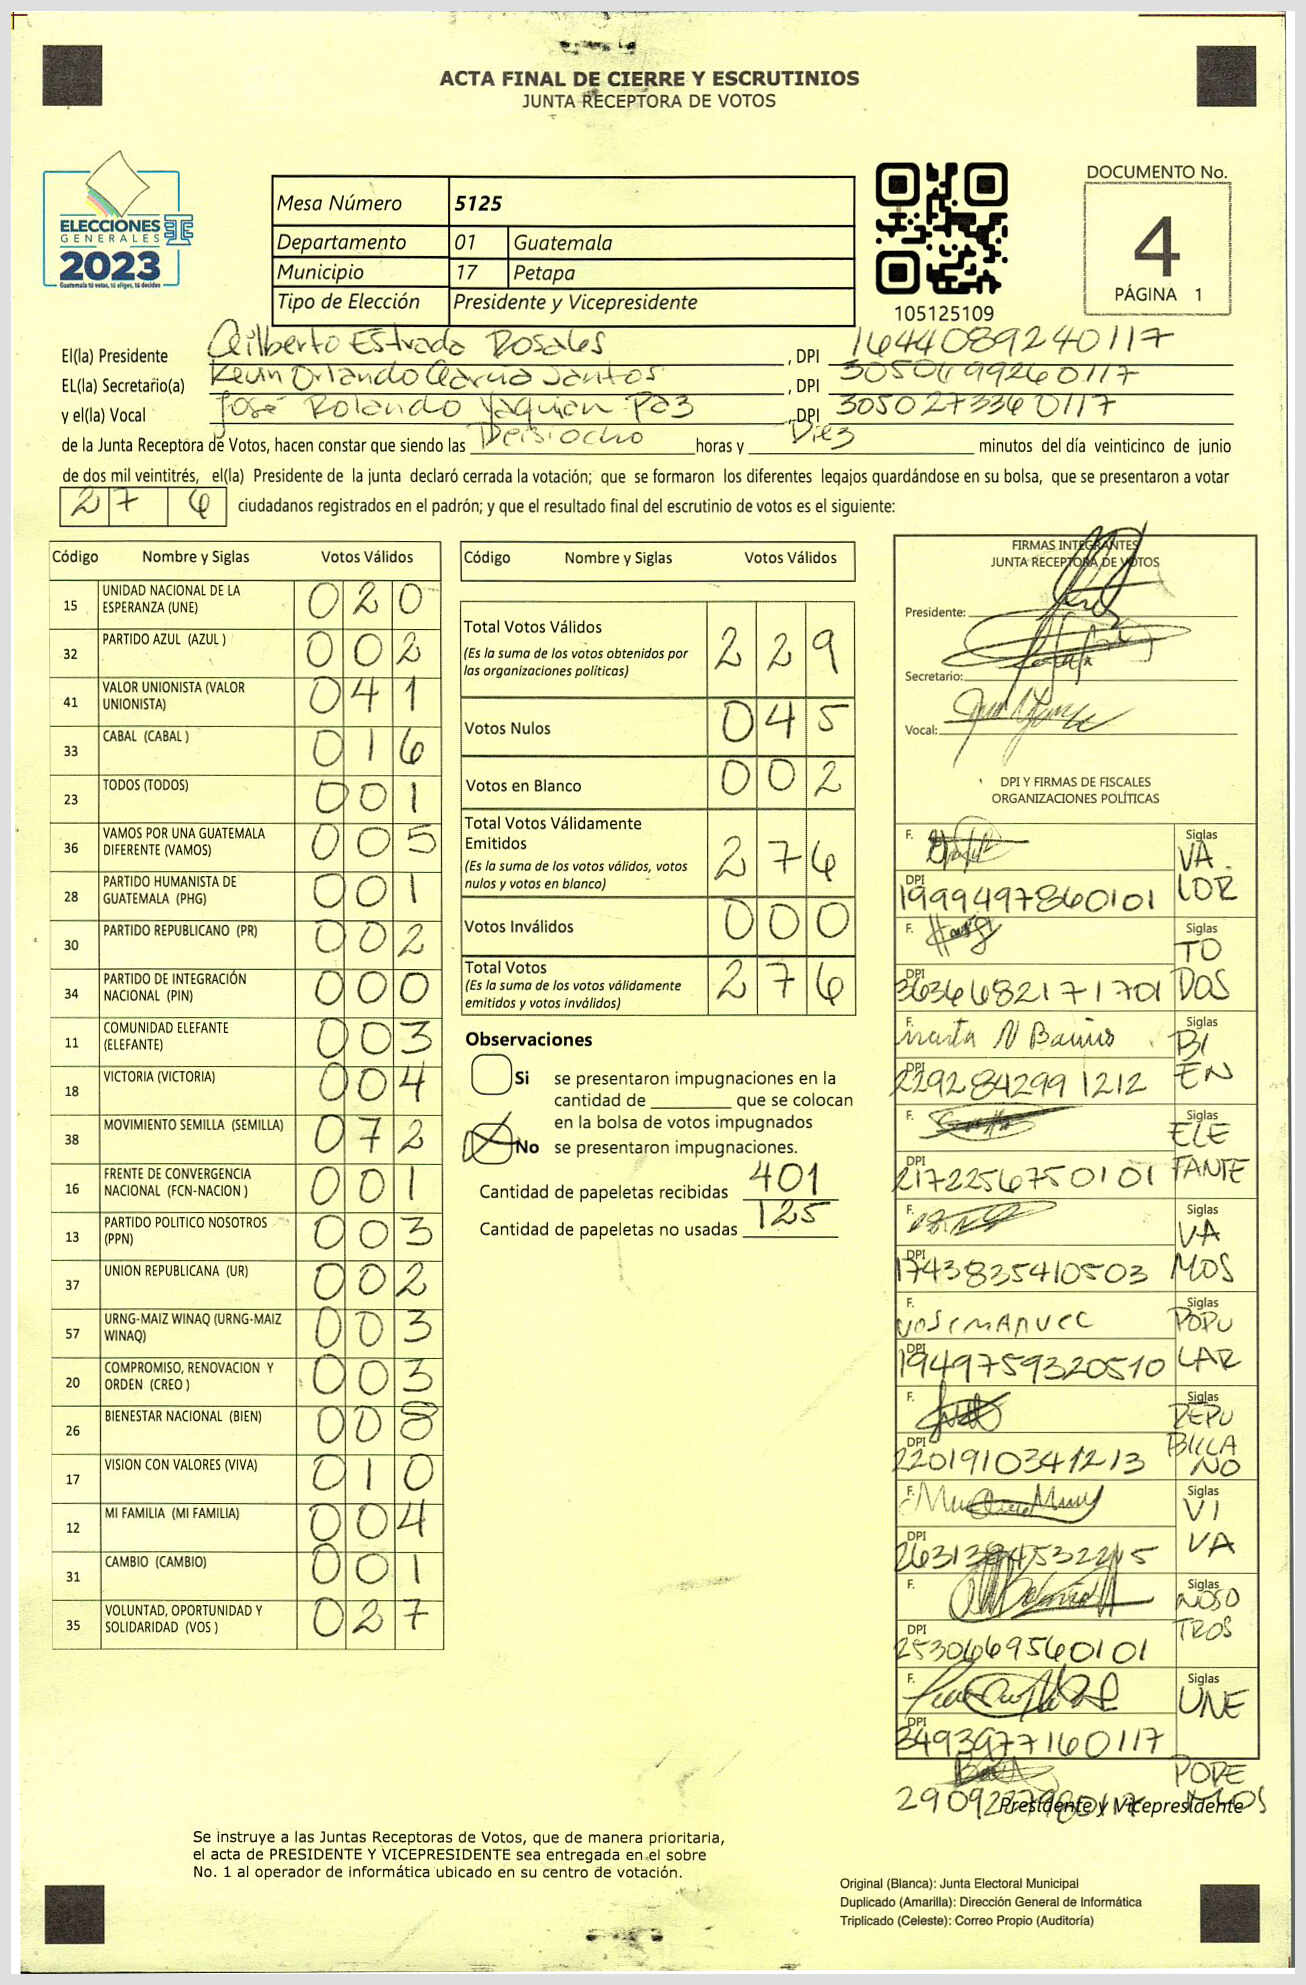 ACTA FINAL DE CIERRE Y ESCRUTINIOS
JUNTA RECEPTORA DE VOTOS
ELECCIONES
GENERALES
2023
Guatemala tú votas, tú eliges, tú decides
Mesa Número 5125
Departamento 01 Guatemala
Municipio 17 Petapa
Tipo de Elección Presidente y Vicepresidente
105125109
DOCUMENTO No.
4
PÁGINA 1
El(la) Presidente Gilberto Estrada Rosales, DPI 1644089240117
EL(la) Secretario(a) Kevin Orlando García Santos, DPI
y el(la) Vocal José Rolando Yaquian Paz, DPI 3050273360117
de la Junta Receptora de Votos, hacen constar que siendo las Deisiocho horas y Diez minutos del día veinticinco de junio
de dos mil veintitrés, el(la) Presidente de la junta declaró cerrada la votación; que se formaron los diferentes legajos guardándose en su bolsa, que se presentaron a votar
276 ciudadanos registrados en el padrón; y que el resultado final del escrutinio de votos es el siguiente:
Código Nombre y Siglas Votos Válidos
15 UNIDAD NACIONAL DE LA ESPERANZA (UNE) 020
32 PARTIDO AZUL (AZUL ) 002
41 VALOR UNIONISTA (VALOR UNIONISTA) 041
33 CABAL (CABAL ) 016
23 TODOS (TODOS) 001
36 VAMOS POR UNA GUATEMALA DIFERENTE (VAMOS) 005
28 PARTIDO HUMANISTA DE GUATEMALA (PHG) 001
30 PARTIDO REPUBLICANO (PR) 002
34 PARTIDO DE INTEGRACIÓN NACIONAL (PIN) 000
11 COMUNIDAD ELEFANTE (ELEFANTE) 003
18 VICTORIA (VICTORIA) 004
38 MOVIMIENTO SEMILLA (SEMILLA) 072
16 FRENTE DE CONVERGENCIA NACIONAL (FCN-NACION ) 001
13 PARTIDO POLITICO NOSOTROS (PPN) 003
37 UNION REPUBLICANA (UR) 002
57 URNG-MAIZ WINAQ (URNG-MAIZ WINAQ) 003
20 COMPROMISO, RENOVACION Y ORDEN (CREO ) 003
26 BIENESTAR NACIONAL (BIEN) 008
17 VISION CON VALORES (VIVA) 010
12 MI FAMILIA (MI FAMILIA) 004
31 CAMBIO (CAMBIO) 001
35 VOLUNTAD, OPORTUNIDAD Y SOLIDARIDAD (VOS ) 027
Código Nombre y Siglas Votos Válidos
Total Votos Válidos 229
(Es la suma de los votos obtenidos por
las organizaciones políticas)
Votos Nulos 045
Votos en Blanco 002
Total Votos Válidamente
Emitidos 276
(Es la suma de los votos válidos, votos
nulos y votos en blanco)
Votos Inválidos 000
Total Votos 276
(Es la suma de los votos válidamente
emitidos y votos inválidos)
Observaciones
Si se presentaron impugnaciones en la
cantidad de ________ que se colocan
en la bolsa de votos impugnados
No se presentaron impugnaciones.
Cantidad de papeletas recibidas 401
Cantidad de papeletas no usadas 125
FIRMAS INTEGRANTES
JUNTA RECEPTORA DE VOTOS
Presidente:
Secretario:
Vocal:
DPI Y FIRMAS DE FISCALES
ORGANIZACIONES POLÍTICAS
F. Siglas VALOR
DPI 1999497860101
F. Siglas TODOS
DPI 3636682171701
F. Marta N Barrios Siglas BIEN
DPI 2292842991212
F. Siglas ELEFANTE
DPI 2172256750101
F. Siglas VAMOS
DPI 1743835410503
F. Siglas POPULAR
DPI 1949759320510
F. Siglas REPUBLICANO
DPI 2201910341213
F. Siglas VIVA
DPI
F. Siglas NOSOTROS
DPI 2530669560101
F. Siglas UNE
DPI 3493977160117
PODEMOS
Presidente y Vicepresidente
Se instruye a las Juntas Receptoras de Votos, que de manera prioritaria,
el acta de PRESIDENTE Y VICEPRESIDENTE sea entregada en el sobre
No. 1 al operador de informática ubicado en su centro de votación.
Original (Blanca): Junta Electoral Municipal
Duplicado (Amarilla): Dirección General de Informática
Triplicado (Celeste): Correo Propio (Auditoría)